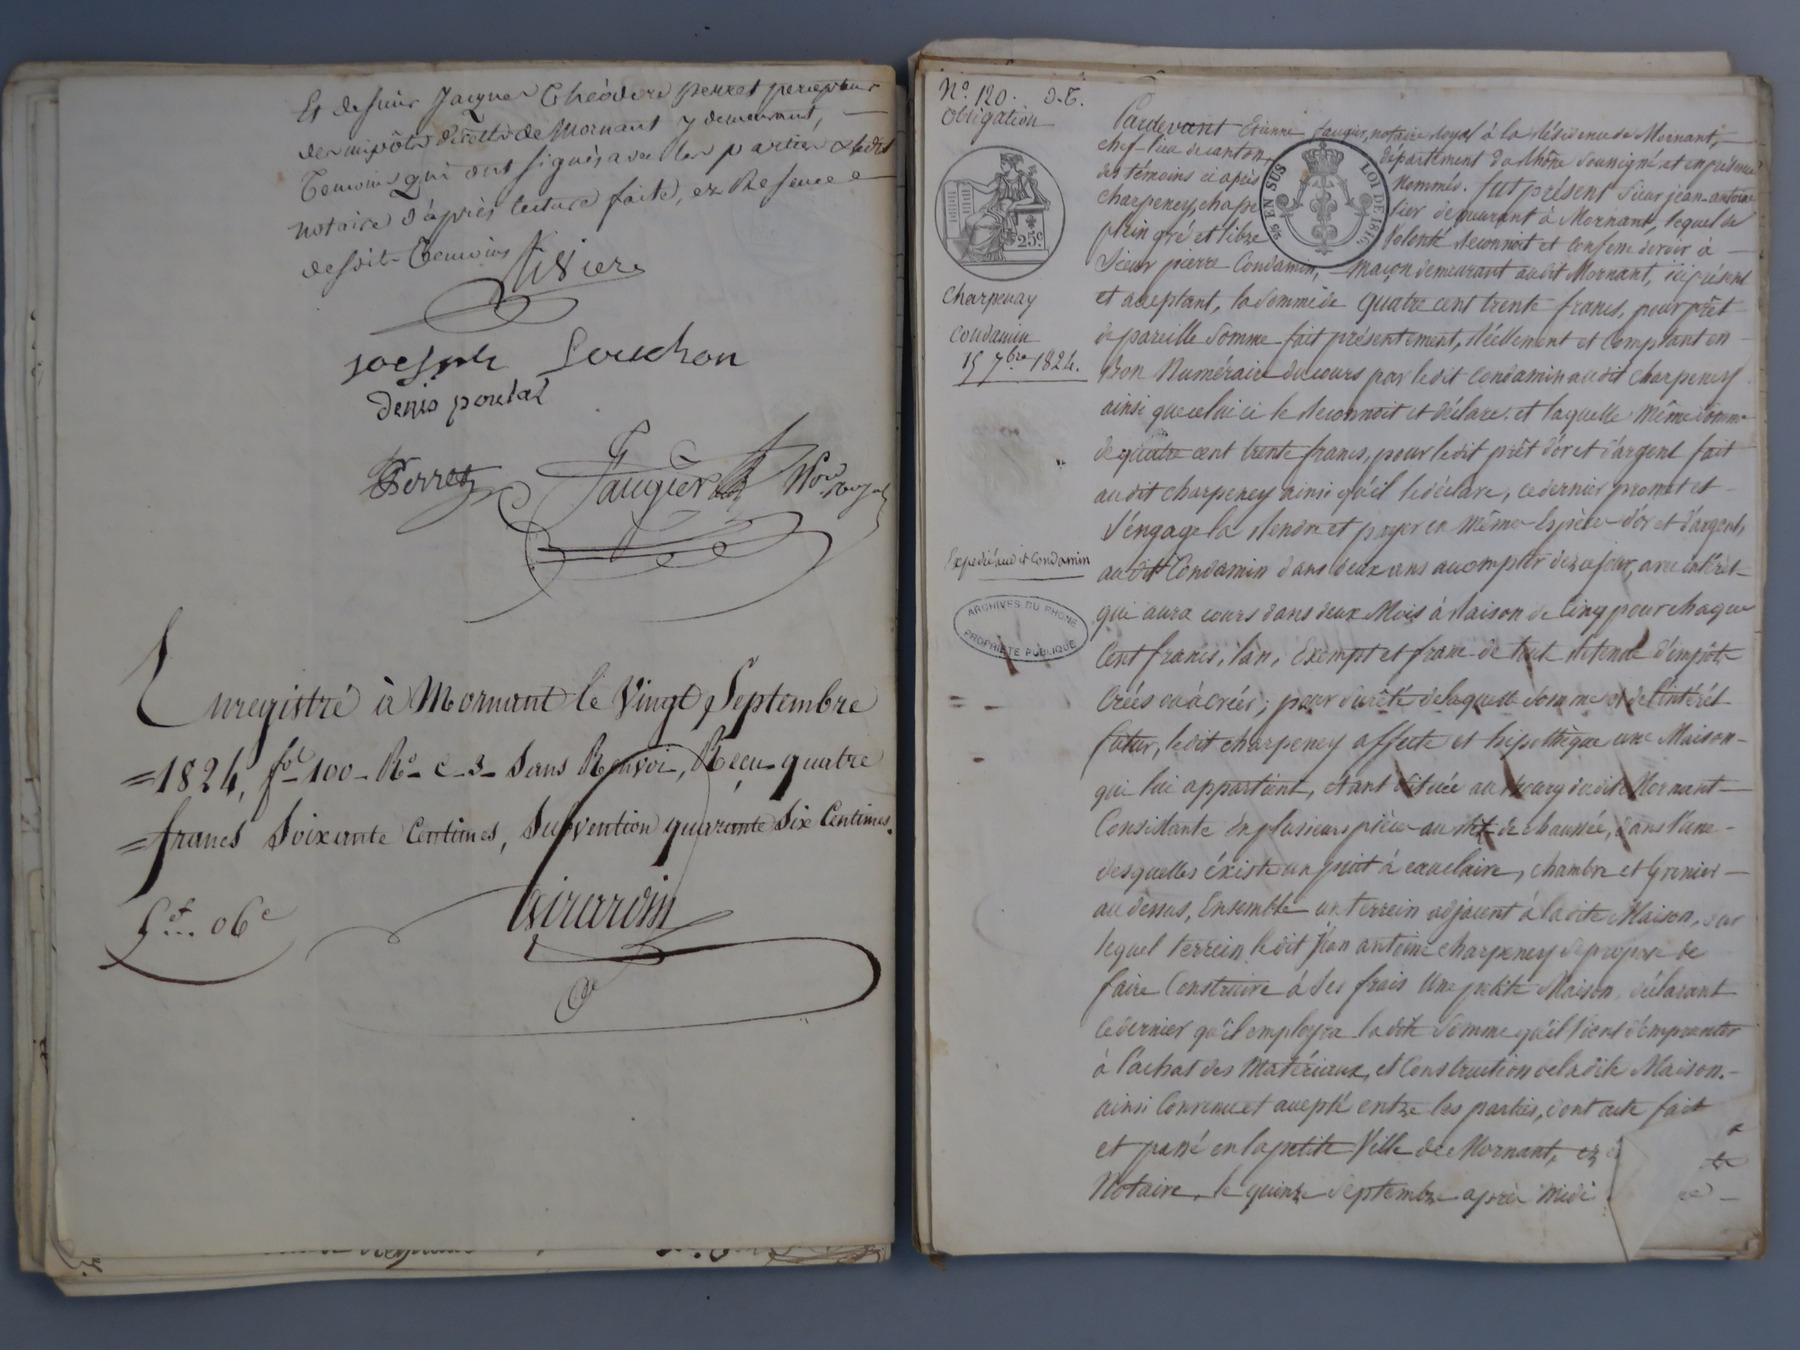 Et de sieur Jacques Théodore perret percepteur
des impôts directs de Mornant y demeurant,
Temoins qui ont signés avec les parties & ledit
notaire d'après lecture faite, ez Présence
desdits Temoins
joseph Souchon
denis poulat
Perret
Faugier Nore royal
Enregistré à Mornant le Vingt Septembre
1824, fo 100 Ro c 3 Sans Renvoi, Reçu quatre
francs Soixante Centimes, Subvention quarante Six Centimes.
5f.. 06c
Girardin
No 120. D.T.
Obligation
25c
Charpenay
Condamin
15 7bre 1824.
Expédié audit Condamin
ARCHIVES DU RHONE
PROPRIÉTÉ PUBLIQUE
25 EN SUS LOI DE 1816
Pardevant Etienne faugier, notaire Royal à la Résidence de Mornant,
chef-lieu de canton, département du Rhône Soussigné, et en présence
des témoins ci après Nommés. fut présent Sieur jean-antoine
charpeney, chapelier demeurant à Mornant, lequel de
plein gré et libre Volonté Reconnoit et confesse devoir à
Sieur pierre Condamin, maçon demeurant audit Mornant, ici présent
et acceptant, la Somme de quatre cent trente francs, pour prêt
de pareille Somme fait présentement, Réellement et Comptant en
bon Numéraire du cours par ledit Condamin audit Charpeney
ainsi que celui ci le Reconnoit et déclare. et laquelle Même Somme
de quatre cent trente francs, pour ledit prêt d'or et d'argent fait
audit charpeney ainsi qu'il le déclare, ce dernier promet et
S'engage la Rendre et payer en Même Espèce d'or et d'argent,
audit Condamin dans deux ans à compter de ce jour, avec intérêt
qui aura cours dans deux Mois à Raison de Cinq pour chaque
Cent francs, l'an, Exempt et franc de toute Retenue d'impôts
Créés ou à créer; pour Sureté de laquelle Somme et de l'intérêt
futur, ledit charpeney affecte et hipothèque une Maison
qui lui appartient, étant Située au Bourg dudit Mornant
Consistante En plusieurs pièces au Rez de chaussée, dans l'une
desquelles éxiste un puit à eau claire, chambre et Grenier
au dessus, Ensemble un terrein adjacent à ladite Maison, sur
lequel terrein ledit Jean antoine charpeney Se propose de
faire Construire à Ses frais Une petite Maison, déclarant
ce dernier qu'il employra ladite Somme qu'il vient d'emprunter
à l'achat des Matériaux, et Construction de ladite Maison.
ainsi Convenu et accepté entre les parties, dont acte fait
et passé en la petite Ville de Mornant, ez
Notaire, le quinze Septembre après Midi